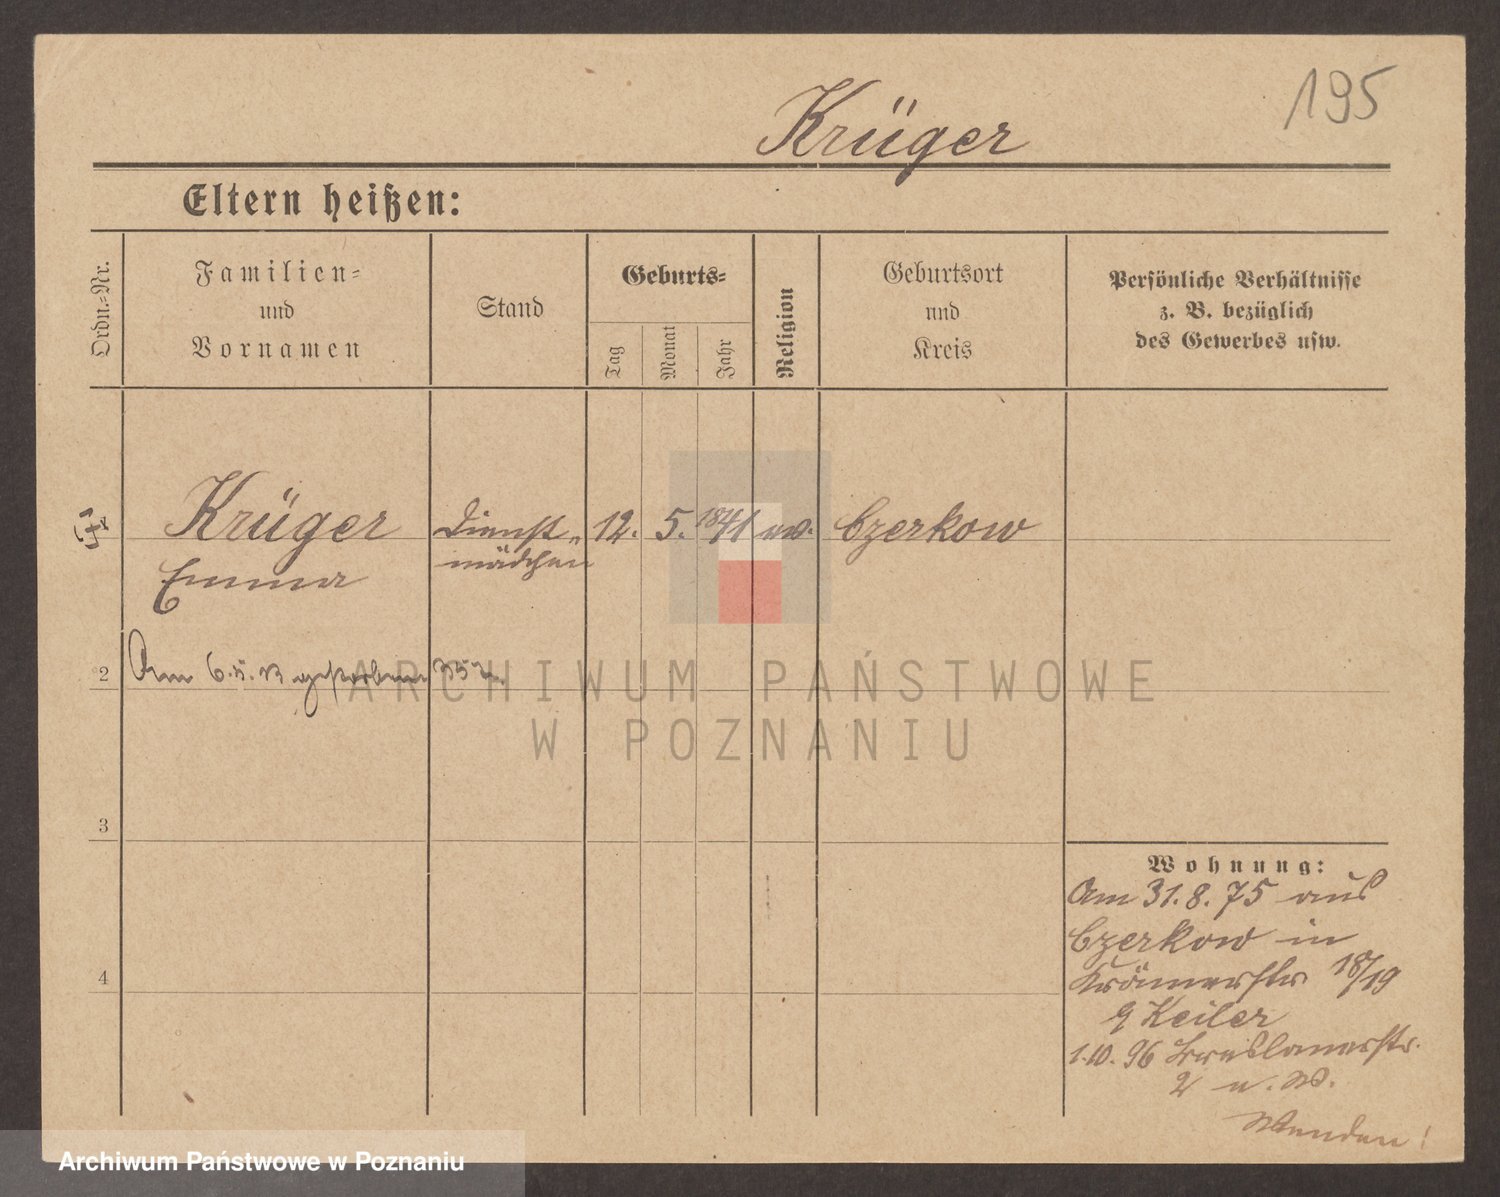 195
Krüger
Eltern heißen:
Ordn.-Nr.
Familien-
und
Vornamen
Stand
Geburts-
Tag
Monat
Jahr
Religion
Geburtsort
und
Kreis
Persönliche Verhältnisse
z. B. bezüglich
des Gewerbes usw.
Krüger Dienst- 12. 5. 1841 ev. Czerkow
Emma mädchen
2 Am 6.5.13 gestorben
3
4
Wohnung:
Am 31. 8. 75 aus
Czerkow in
Krämerstr 18/19
Keiler
1.10.96 Breslauerstr.
Wenden!
ARCHIWUM PAŃSTWOWE
W POZNANIU
Archiwum Państwowe w Poznaniu